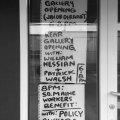 GALLERY
OPENING
REAR
GALLERY
OPENING
WITH:
WILLIAM
HESSIAN
+
PATRICK
WALSH
6PM
8PM:
SO. MAINE
WORKERS
BENEFIT
WITH: POLICY